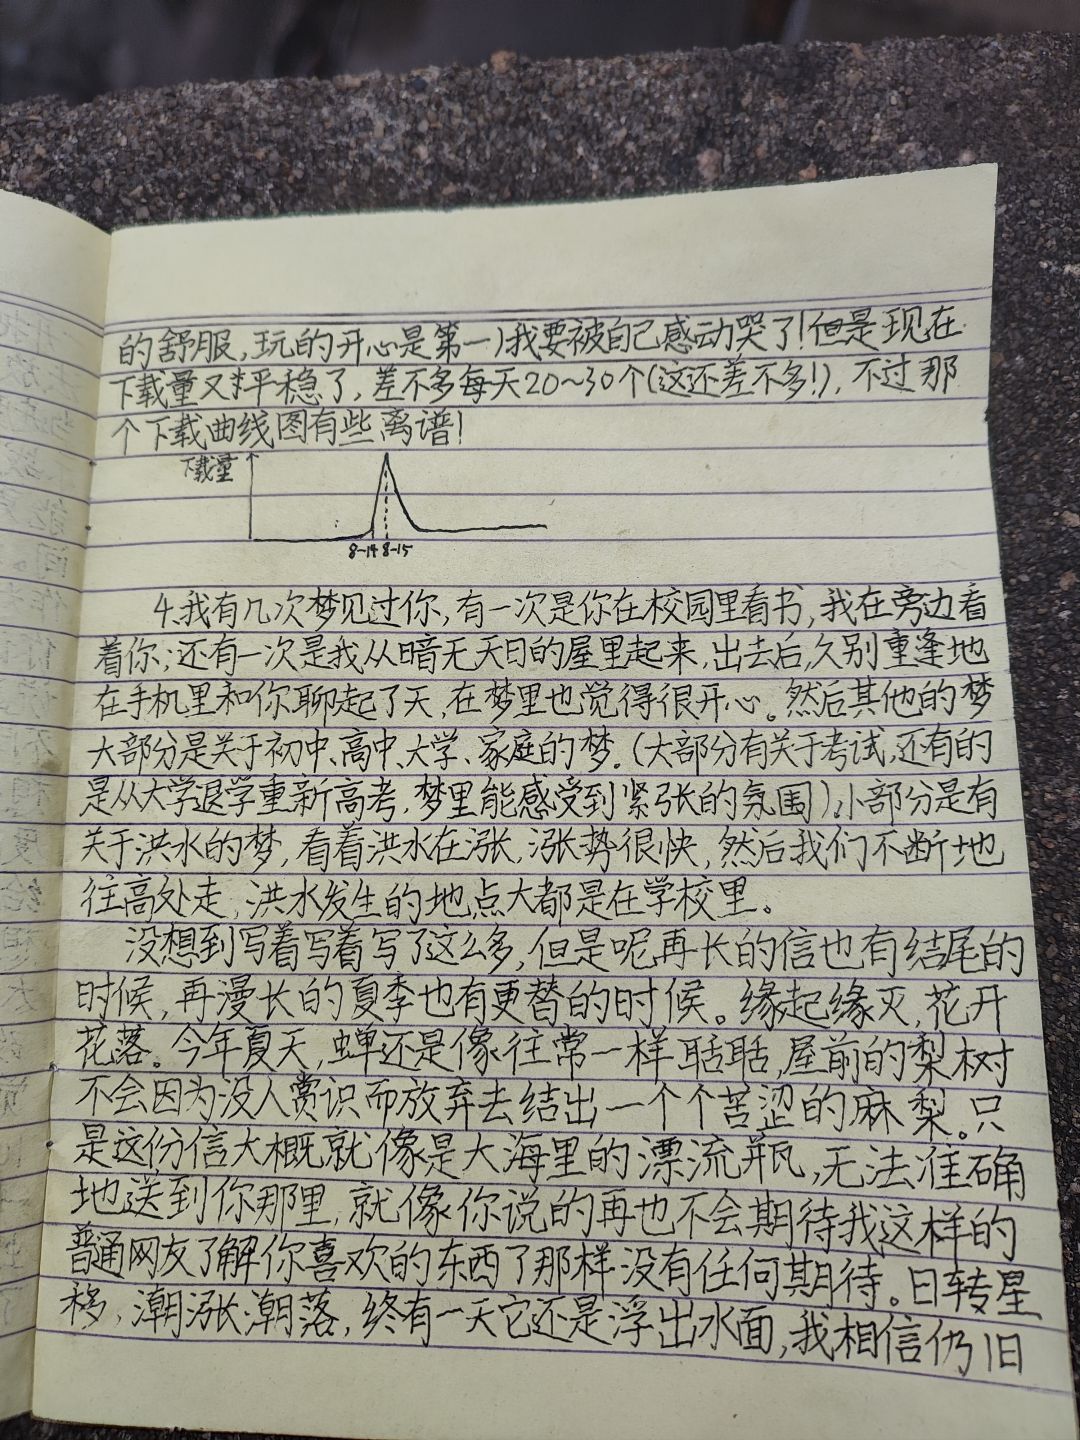 的舒服,玩的开心是第一)我要被自己感动哭了!但是现在
下载量又平稳了,差不多每天20~30个(这还差不多!),不过那
个下载曲线图有些离谱!
下载量
8-14 8-15
4.我有几次梦见过你,有一次是你在校园里看书,我在旁边看
着你;还有一次是我从暗无天日的屋里起来,出去后,久别重逢地
在手机里和你聊起了天,在梦里也觉得很开心。然后其他的梦
大部分是关于初中、高中、大学、家庭的梦.(大部分有关于考试,还有的
是从大学退学重新高考,梦里能感受到紧张的氛围),小部分是有
关于洪水的梦,看着洪水在涨,涨势很快,然后我们不断地
往高处走,洪水发生的地点大都是在学校里。
没想到写着写着写了这么多,但是呢再长的信也有结尾的
时候,再漫长的夏季也有更替的时候。缘起缘灭,花开
花落。今年夏天,蝉还是像往常一样聒聒,屋前的梨树
不会因为没人赏识而放弃去结出一个个苦涩的麻梨。只
是这份信大概就像是大海里的漂流瓶,无法准确
地送到你那里,就像你说的再也不会期待我这样的
普通网友了解你喜欢的东西了那样没有任何期待。日转星
移,潮涨潮落,终有一天它还是浮出水面,我相信仍旧